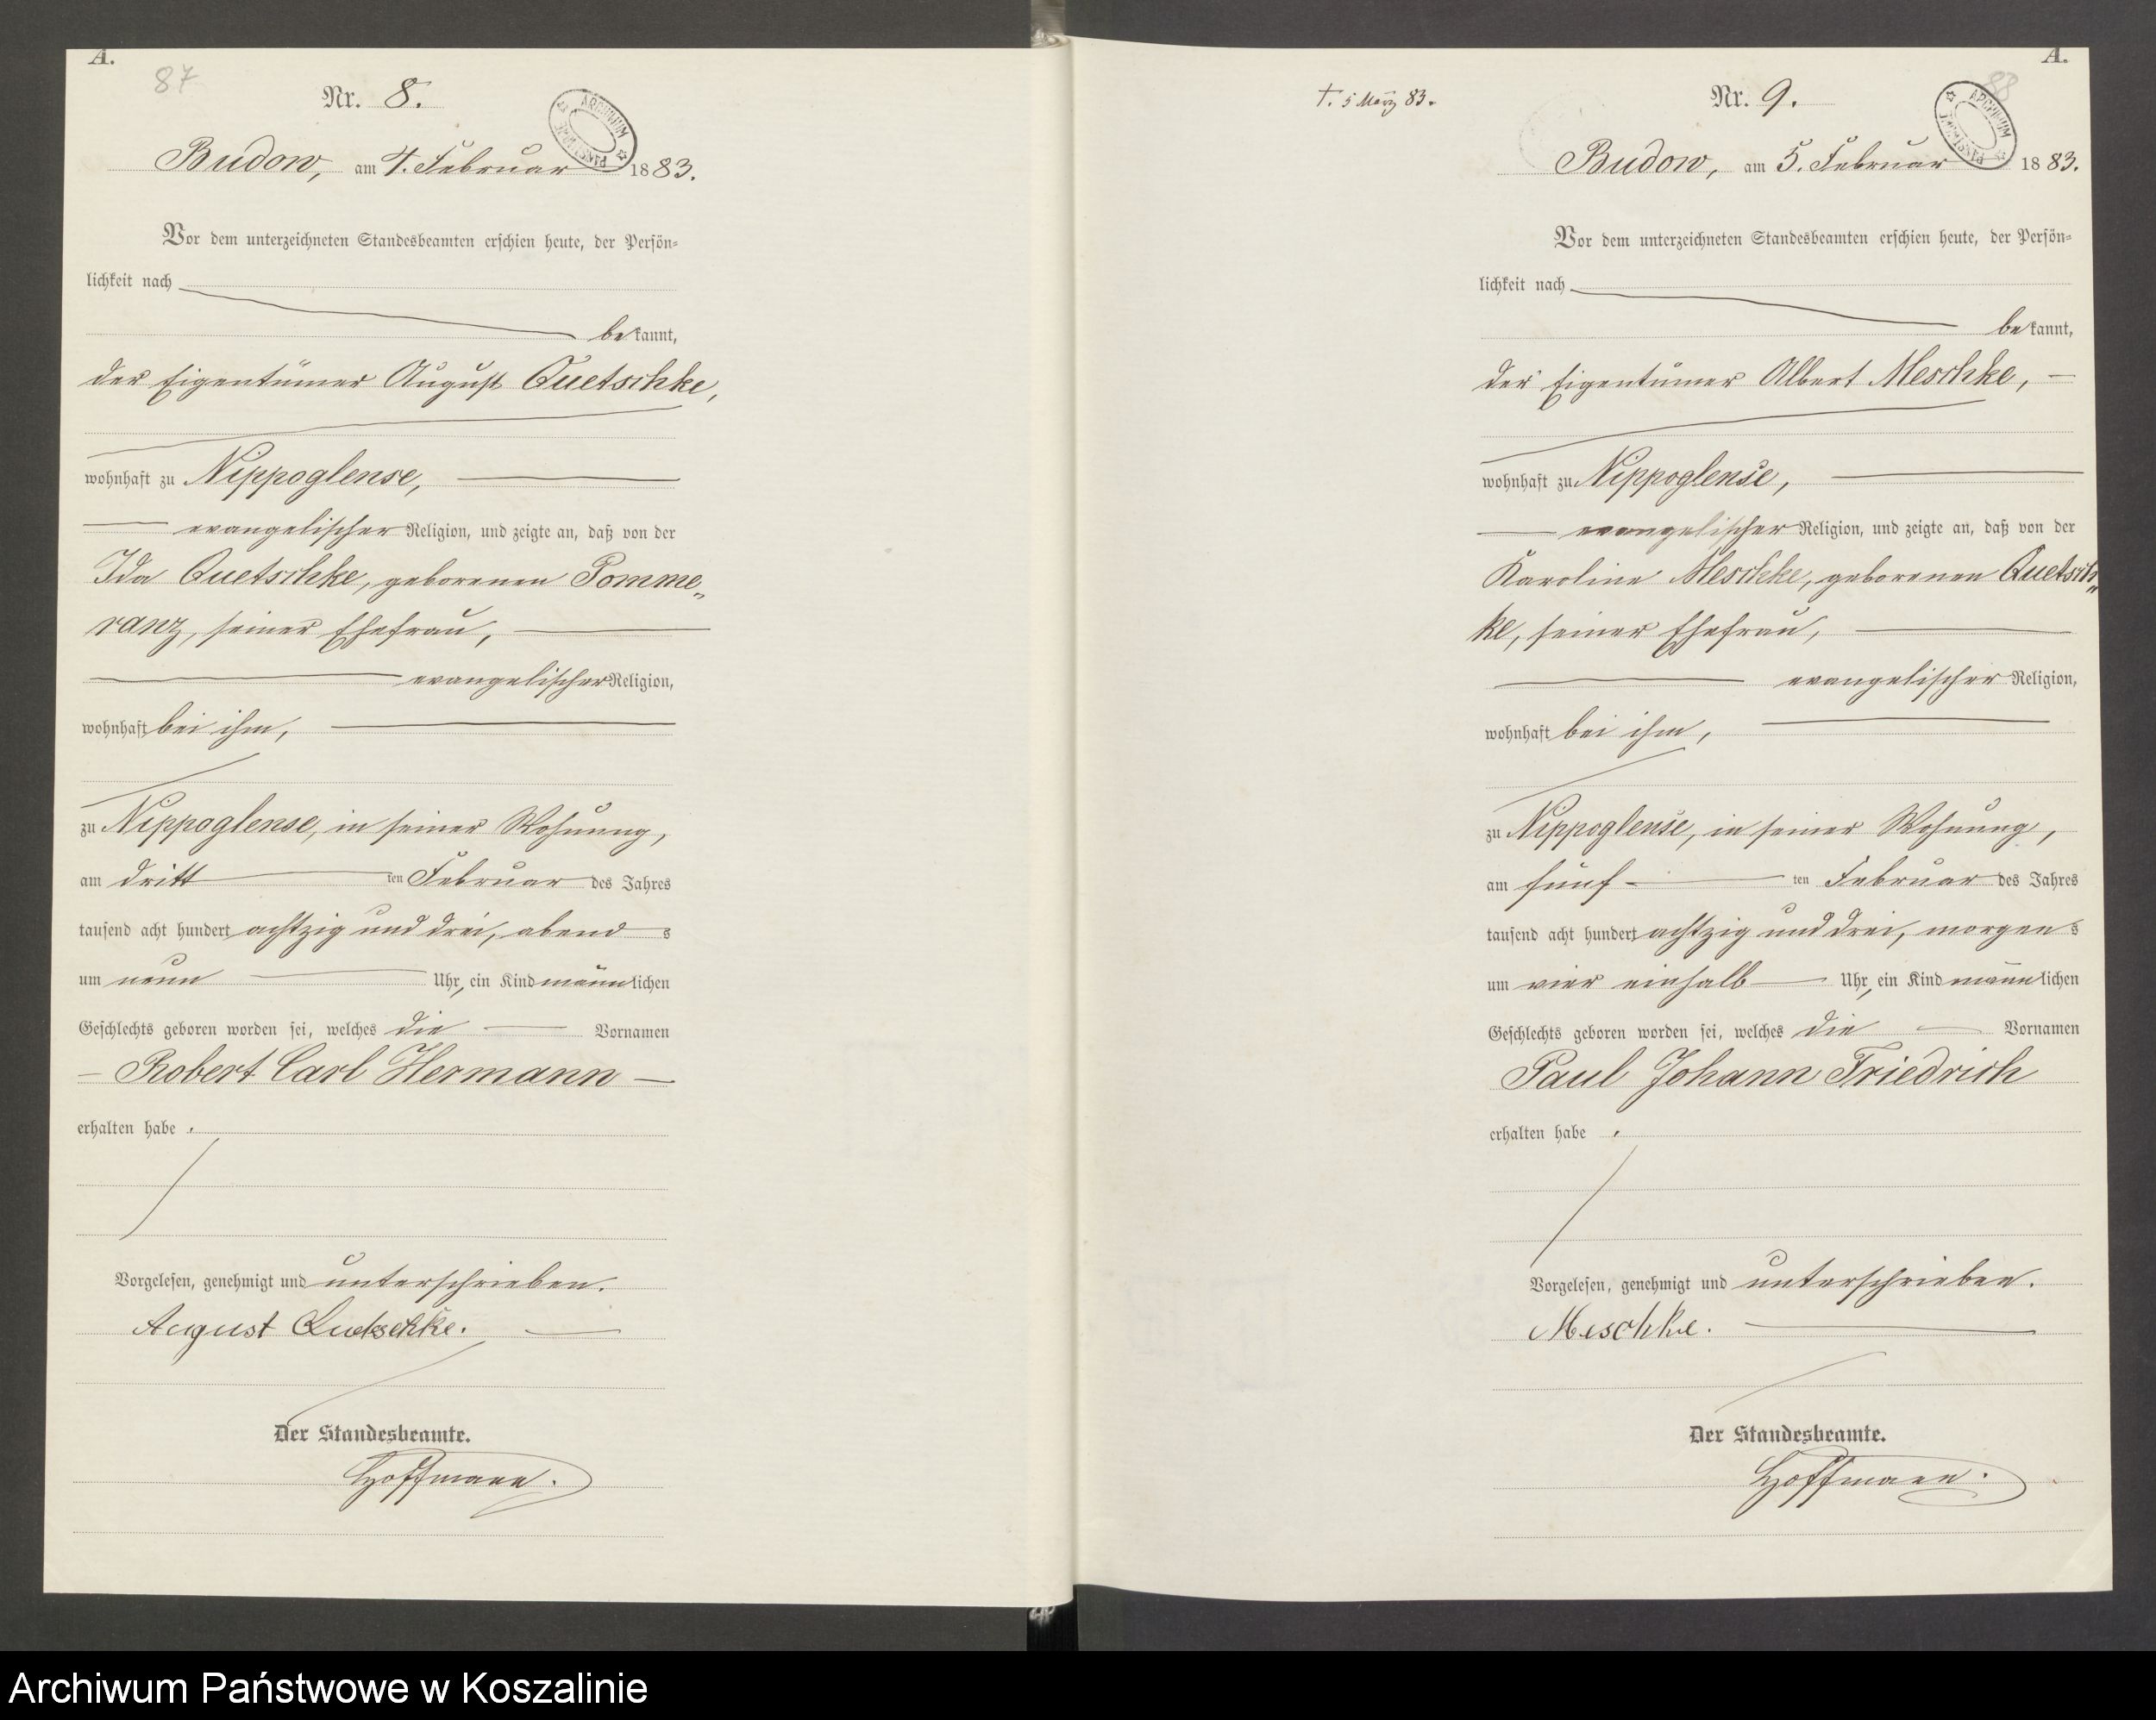 A.
87
Nr. 8.
ARCHIWUM PAŃSTWOWE
Budow, am 4. Februar 1883.
Vor dem unterzeichneten Standesbeamten erschien heute, der Persön-
lichkeit nach
bekannt,
der Eigentümer August Quetschke,
wohnhaft zu Nippoglense,
evangelischer Religion, und zeigte an, daß von der
Ida Quetschke, geborenen Pomme-
ranz, seiner Ehefrau,
evangelischer Religion,
wohnhaft bei ihm,
zu Nippoglense, in seiner Wohnung,
am dritt ten Februar des Jahres
tausend acht hundert achtzig und drei, abends
um neun Uhr, ein Kind männlichen
Geschlechts geboren worden sei, welches die Vornamen
– Robert Carl Hermann –
erhalten habe.
Vorgelesen, genehmigt und unterschrieben.
August Quetschke.
Der Standesbeamte.
Hoffmann.
A.
88
†. 5 März 83.
Nr. 9.
ARCHIWUM PAŃSTWOWE
Budow, am 5. Februar 1883.
Vor dem unterzeichneten Standesbeamten erschien heute, der Persön-
lichkeit nach
bekannt,
der Eigentümer Albert Meschke, –
wohnhaft zu Nippoglense,
evangelischer Religion, und zeigte an, daß von der
Karoline Meschke, geborenen Quetsch-
ke, seiner Ehefrau,
evangelischer Religion,
wohnhaft bei ihm,
zu Nippoglense, in seiner Wohnung,
am fünf ten Februar des Jahres
tausend acht hundert achtzig und drei, morgens
um vier einhalb Uhr, ein Kind männlichen
Geschlechts geboren worden sei, welches die Vornamen
Paul Johann Friedrich
erhalten habe.
Vorgelesen, genehmigt und unterschrieben.
Meschke.
Der Standesbeamte.
Hoffmann.
Archiwum Państwowe w Koszalinie